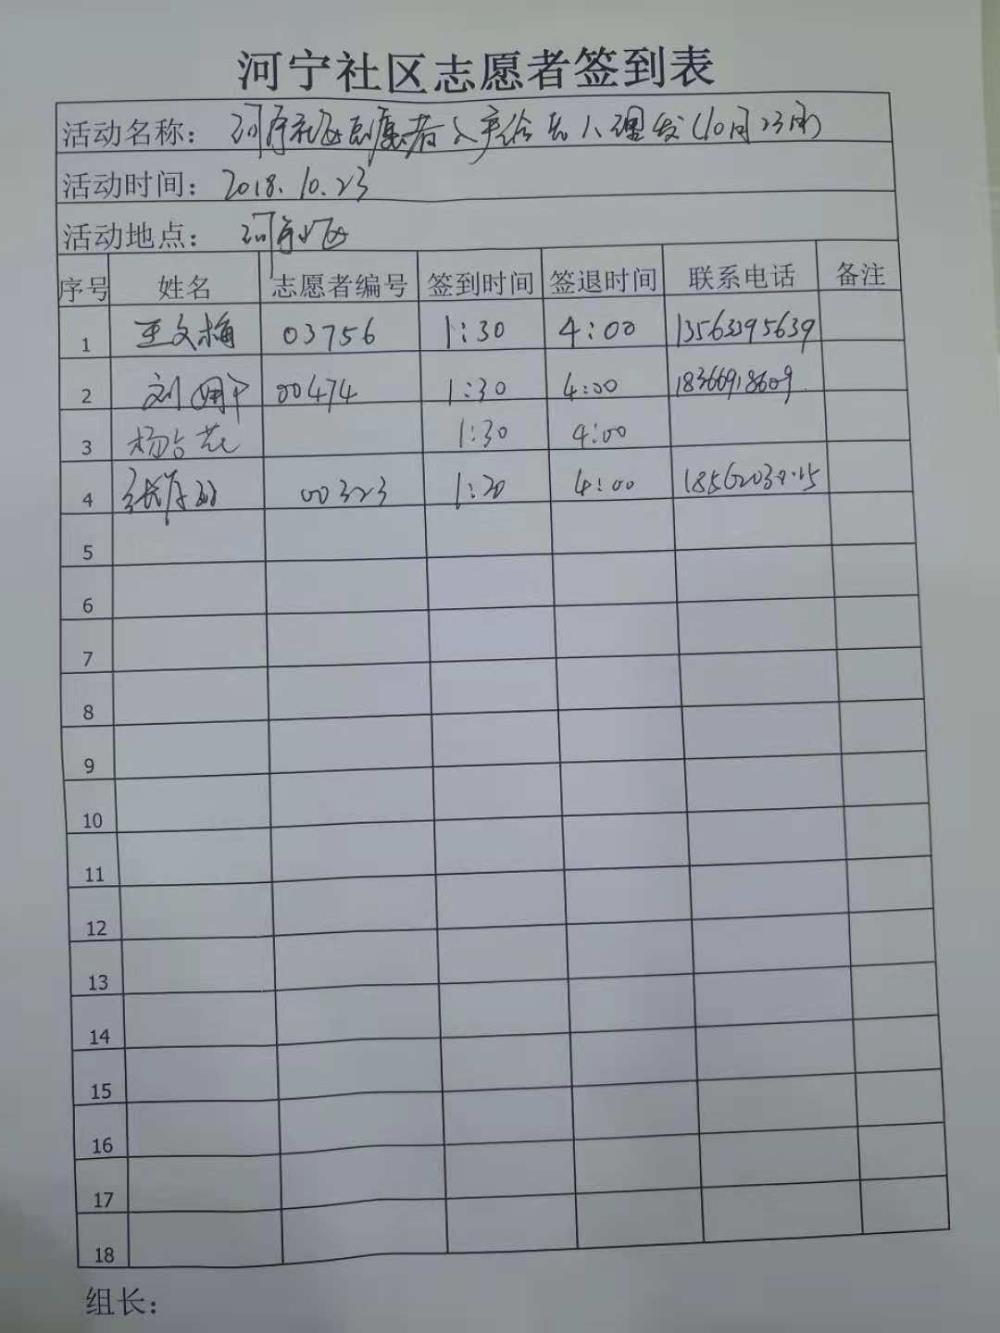 河宁社区志愿者签到表
活动名称： 河宁社区志愿者入户给老人理发(10月23日)
活动时间： 2018.10.23
活动地点： 河宁小区
序号 姓名 志愿者编号 签到时间 签退时间 联系电话 备注
1 王文梅 03756 1:30 4:00 13563395639
2 刘 00474 1:30 4:00 18366918609
3 杨占花 1:30 4:00
4 张 00323 1:20 4:00
5
6
7
8
9
10
11
12
13
14
15
16
17
18
组长：